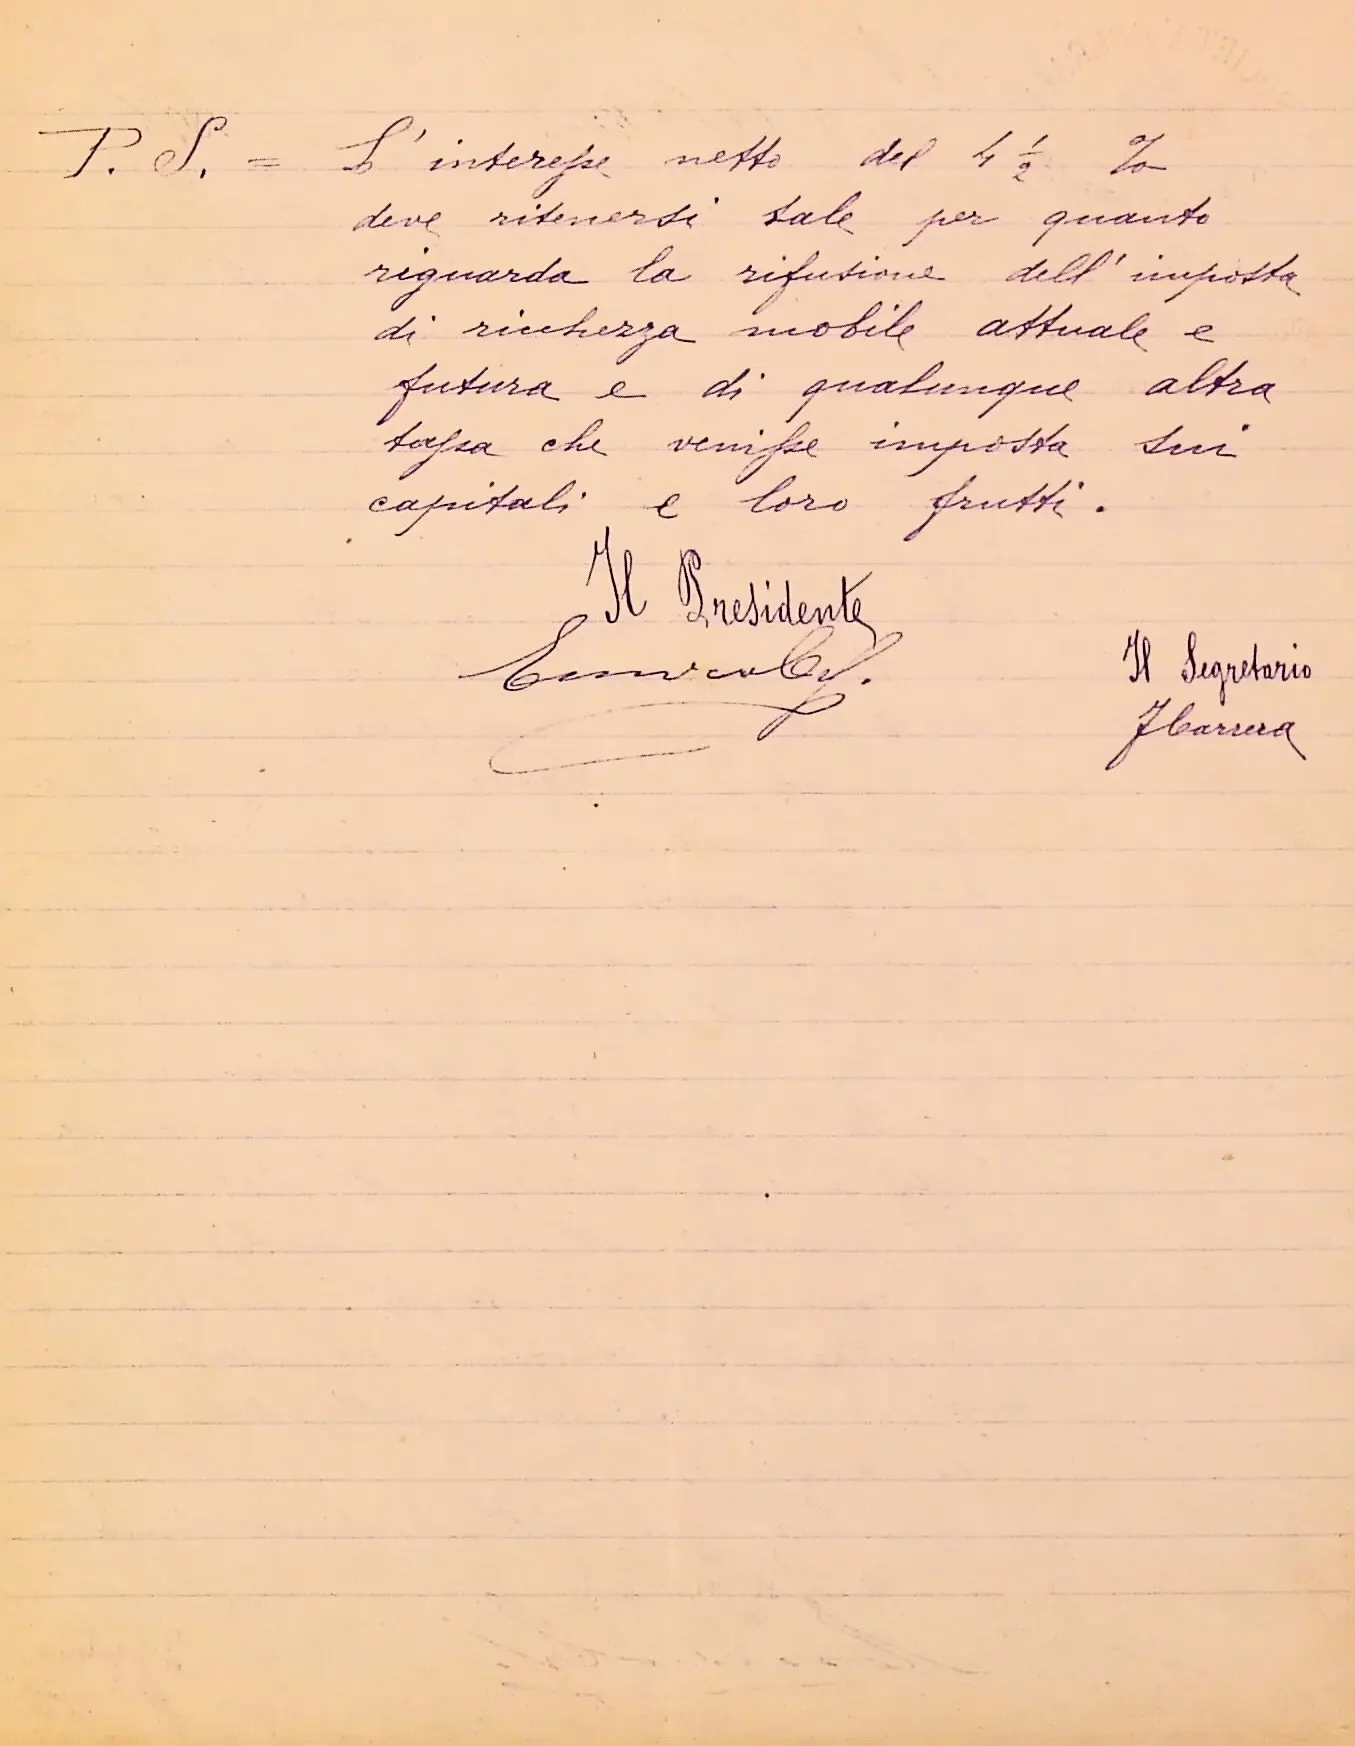 P. S. = L'interesse netto del 4 ½ %
deve ritenersi tale per quanto
riguarda la rifusione dell'imposta
di ricchezza mobile attuale e
futura e di qualunque altra
tassa che venisse imposta sui
capitali e loro frutti.
Il Presidente
Il Segretario